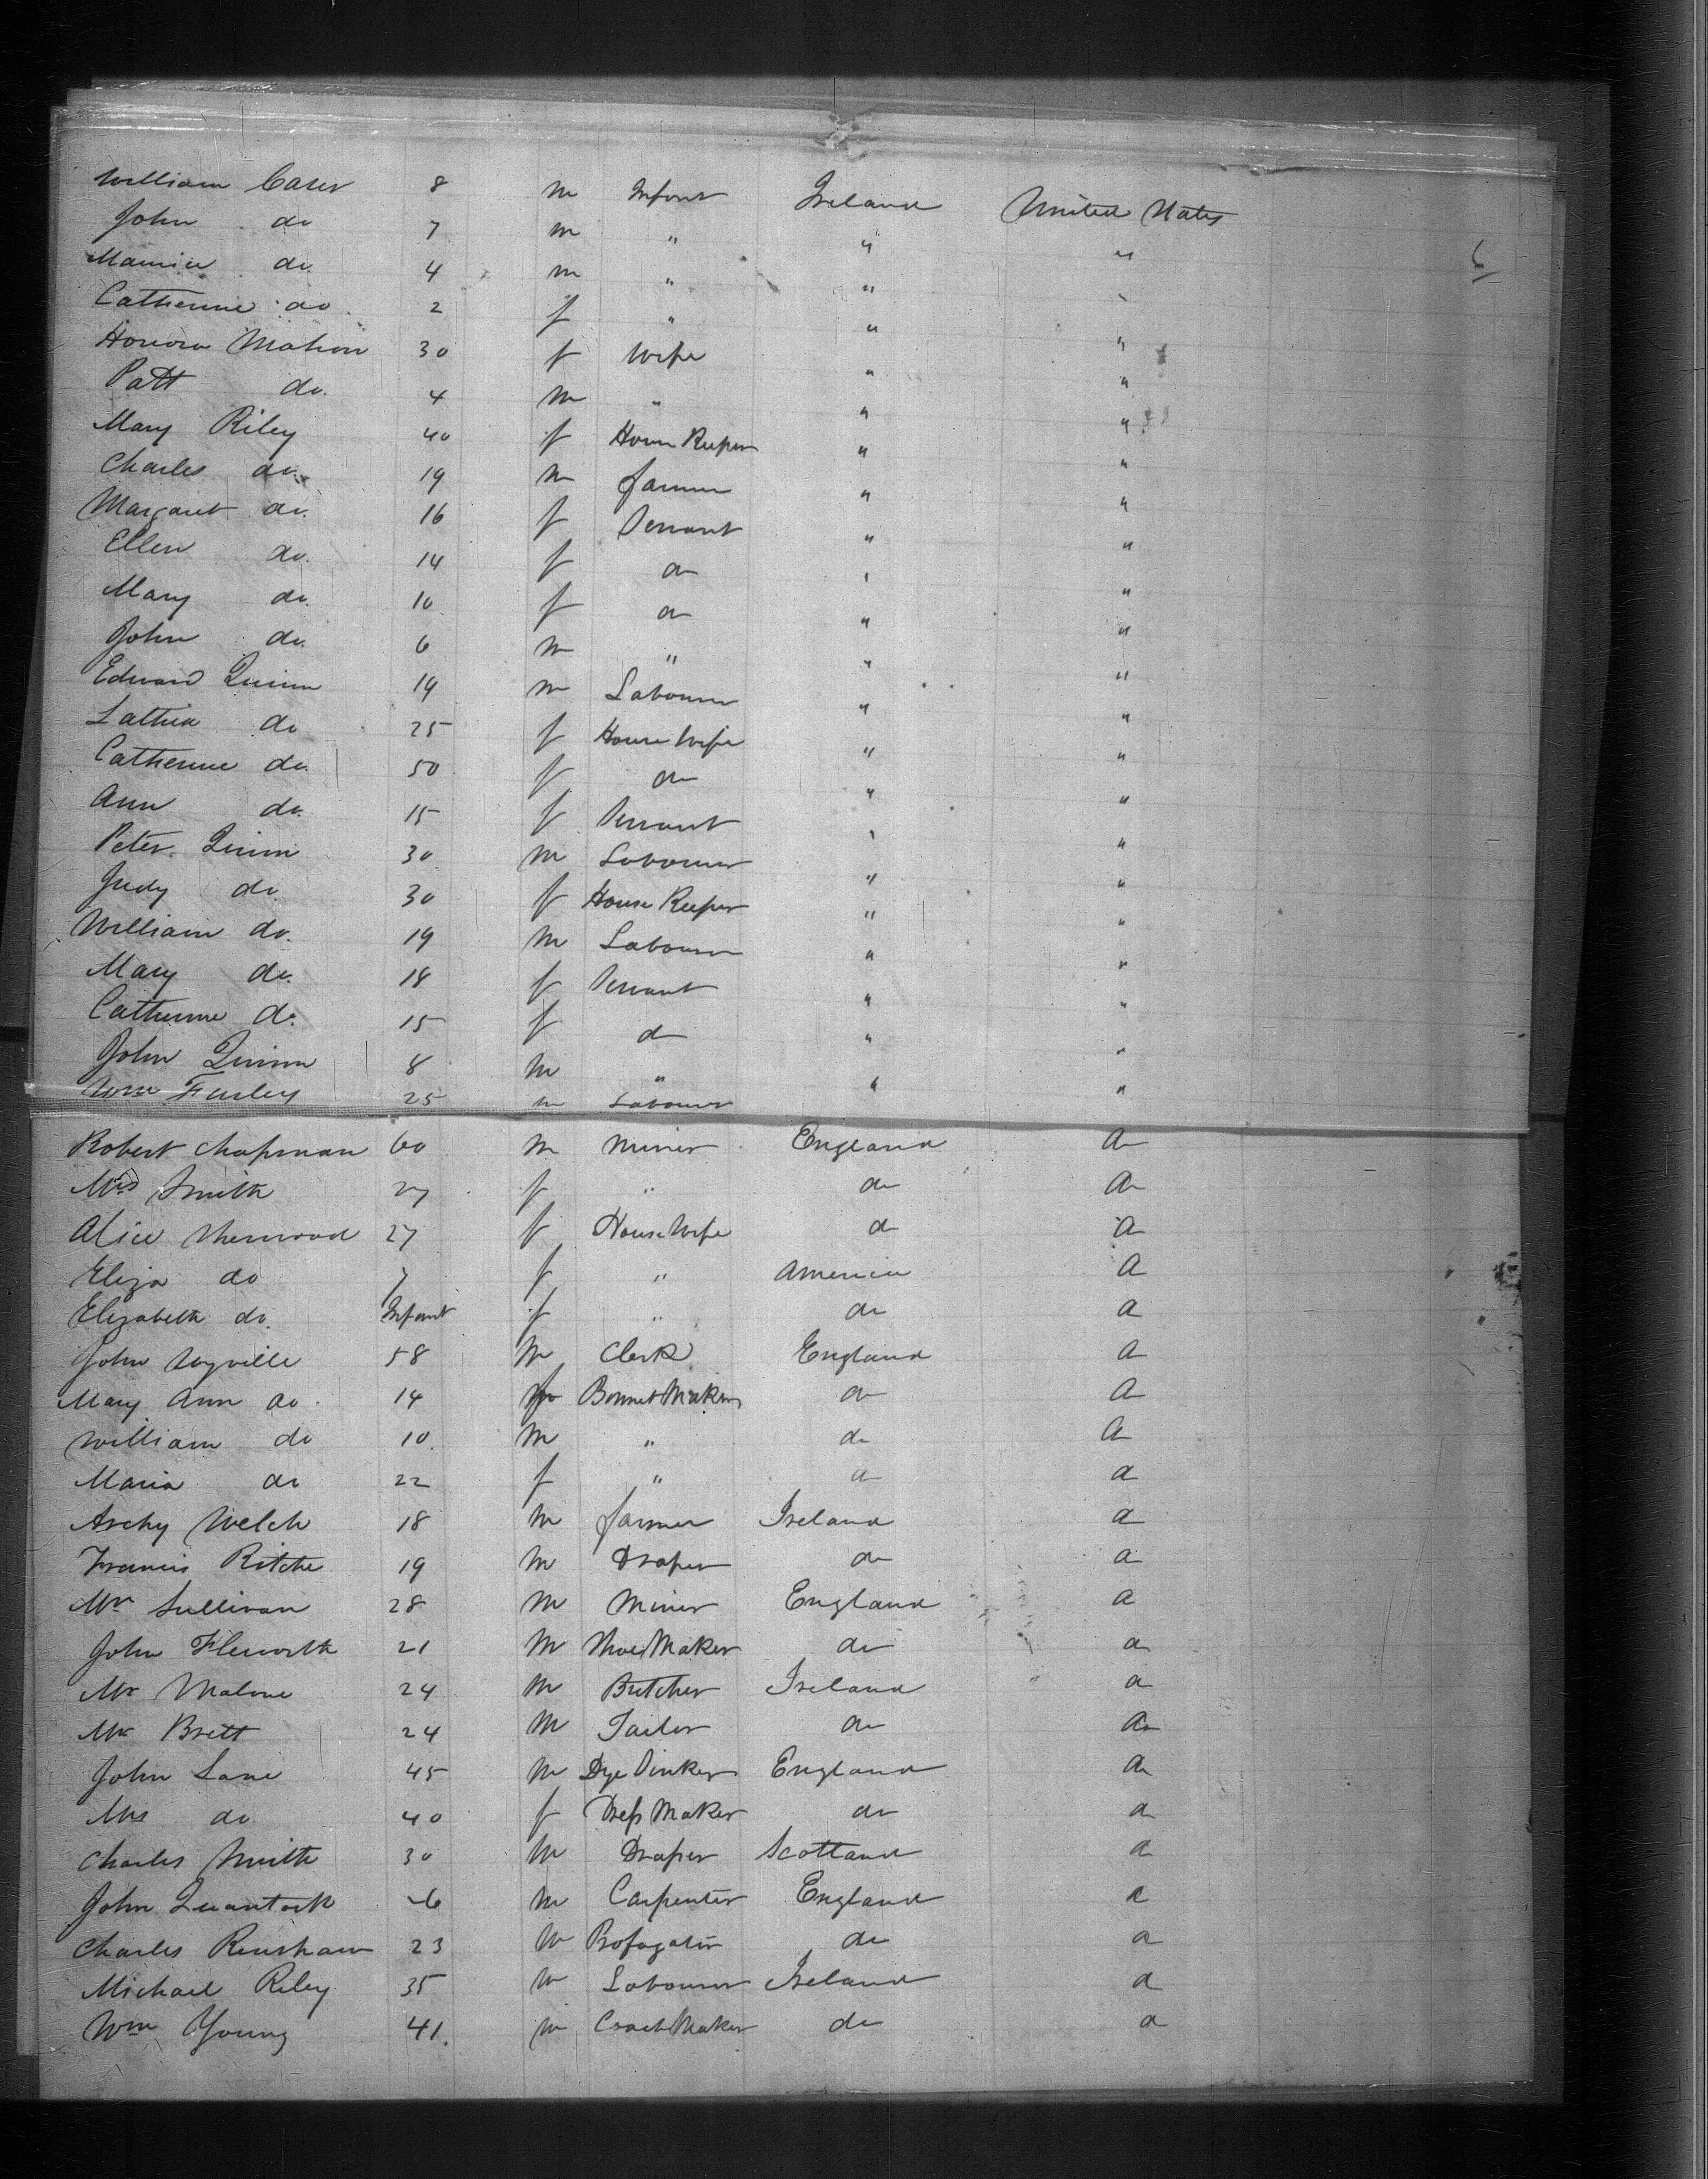 William Casey 8 m Infant Ireland United States
John do 7 m " " "
Maurice do. 4 m " " "
Catherine do. 2 f " " "
Honora Mahon 30 f Wife " "
Patt do. 4 m " " "
Mary Riley 40 f House Keeper " "
Charles do. 19 m farmer " "
Margaret do. 16 f Servant " "
Ellen do. 14 f do " "
Mary do. 10 f do " "
John do. 6 m " " "
Edward Quinn 19 m Labourer " "
do 25 f House Wife " "
Catherine do. 50 f do " "
Ann do. 15 f Servant " "
Peter Quinn 30 m Labourer " "
Judy do. 30 f House Keeper " "
William do. 19 m Labourer " "
Mary do. 18 f Servant " "
Catherine do. 15 f do " "
John Quinn 8 m " " "
Wm Farley 25 m Labourer
Robert Chapman 60 m Miner England do
Mrs Smith 27 f " do do
Alice Sherwood 27 f House Wife do do
Eliza do 7 f " America do
Elizabeth do. Infant f " do do
John Wyville 58 m Clerk England do
Mary Ann do. 14 f Bonnet Maker do do
William do 10. m " do do
Maria do 22 f " do do
Archy Welch 18 m farmer Ireland do
Francis Ritche 19 m Draper do do
Mr Sullivan 28 m Miner England do
John 21 m Shoe Maker do do
Mr Malone 24 m Butcher Ireland do
Mr Brett 24 m Tailor do do
John Lane 45 m Dye Sinker England do
Mrs do. 40 f Dress Maker do do
Charles Smith 30 m Draper Scotland do
John Quantock m Carpenter England do
Charles Renshaw 23 m do do
Michael Riley 35 m Labourer Ireland do
Wm Young 41. m Coach Maker do do